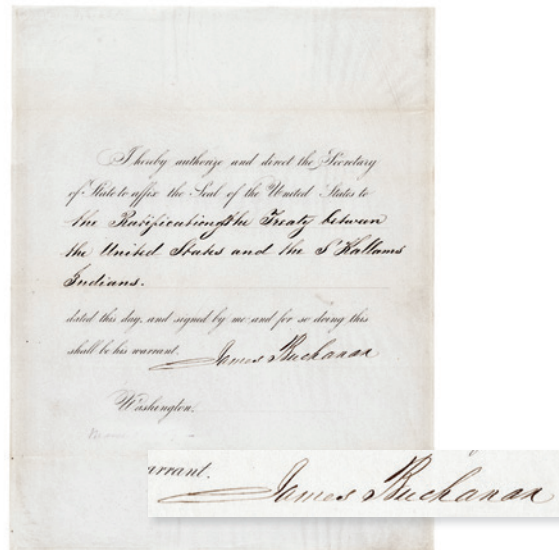 I hereby authorize and direct the Secretary
of State to affix the Seal of the United States to
the Ratification of the Treaty between
the United States and the S'Kallams
Indians.
dated this day, and signed by me and for so doing this
shall be his warrant.
James Buchanan
Washington,
arrant.
James Buchanan